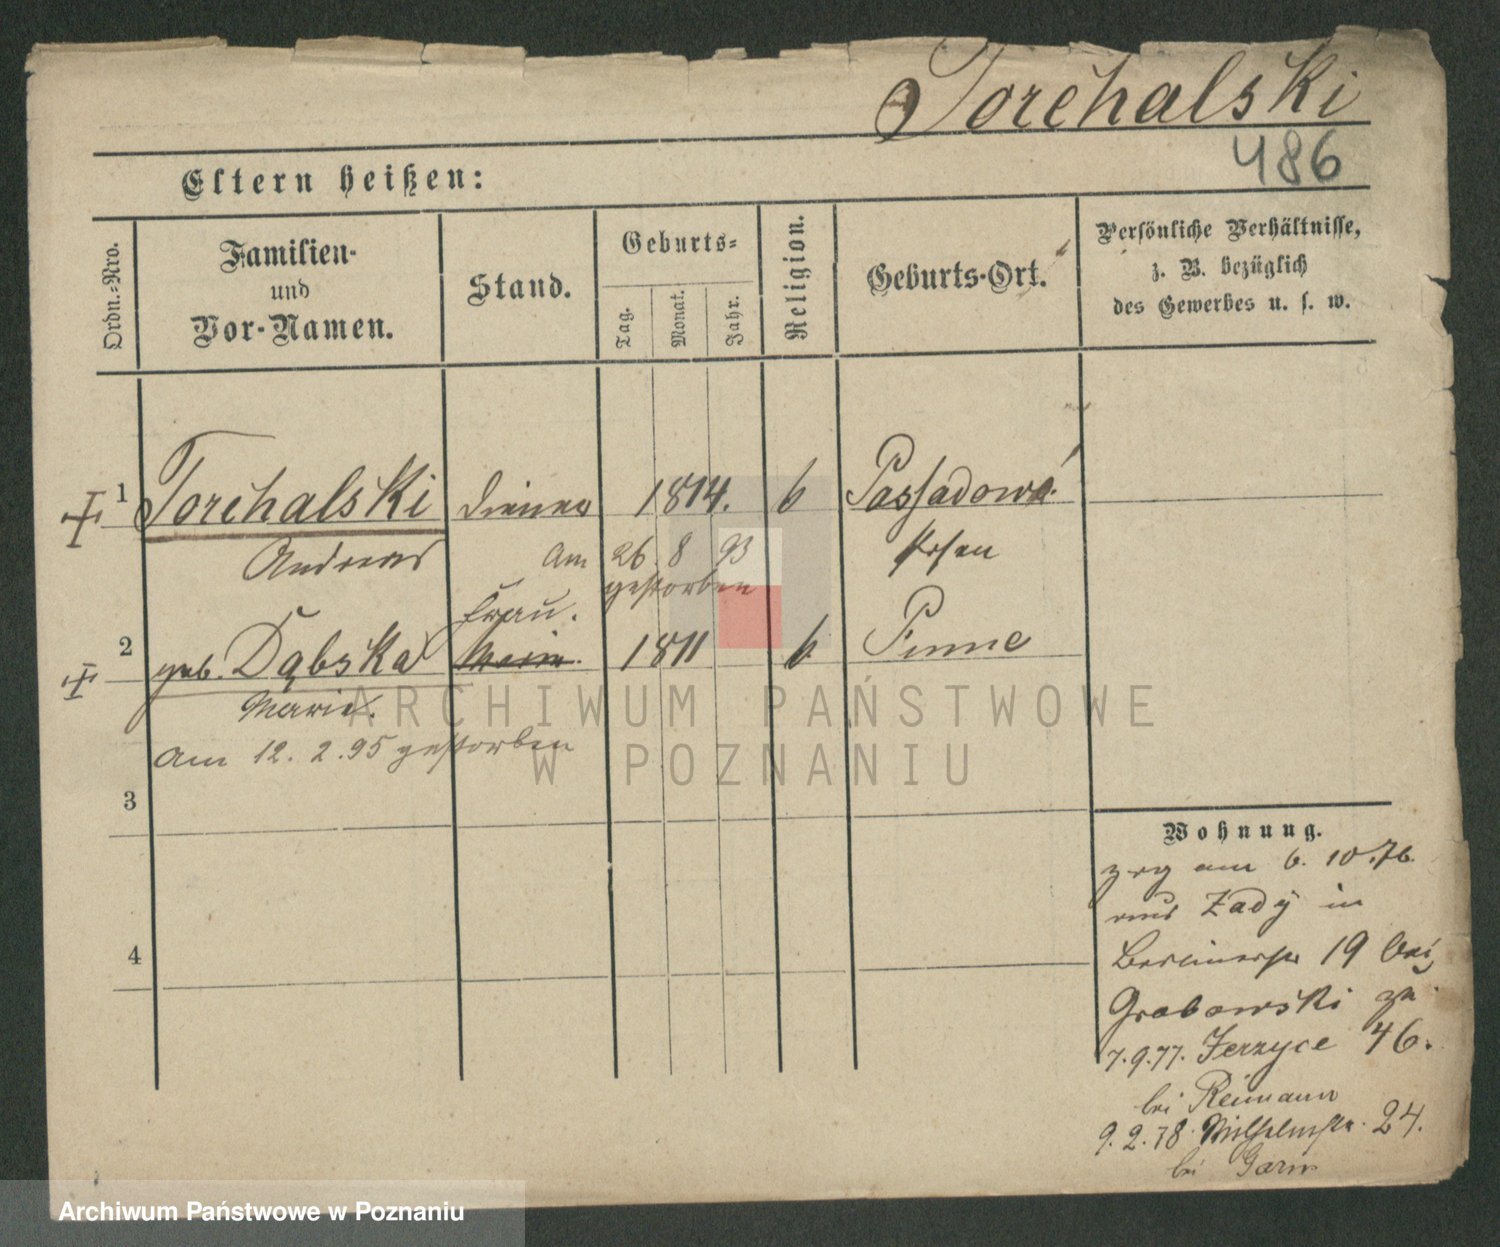 Torchalski
486
Eltern heißen:
Ordn.-Nro.
Familien-
und
Vor-Namen.
Stand.
Geburts-
Tag.
Monat.
Jahr.
Religion.
Geburts-Ort.
Persönliche Verhältnisse,
z. B. bezüglich
des Gewerbes u. s. w.
1 Torchalski Diener 1814. k Passadowo
Andreas Am 26 8 93 Posen
gestorben
Frau.
2 geb. Dąbska 1811 k. Pinne
Marie
Am 12. 2. 95 gestorben
3
4
Wohnung.
zog am 6. 10. 76.
aus Zady in
Berlinerstr 19 bei
Grabowski zu
7.9.77. Jerzyce 46.
bei Reimann
9.2.78 Wilhelmstr. 24.
bei
ARCHIWUM PAŃSTWOWE
W POZNANIU
Archiwum Państwowe w Poznaniu